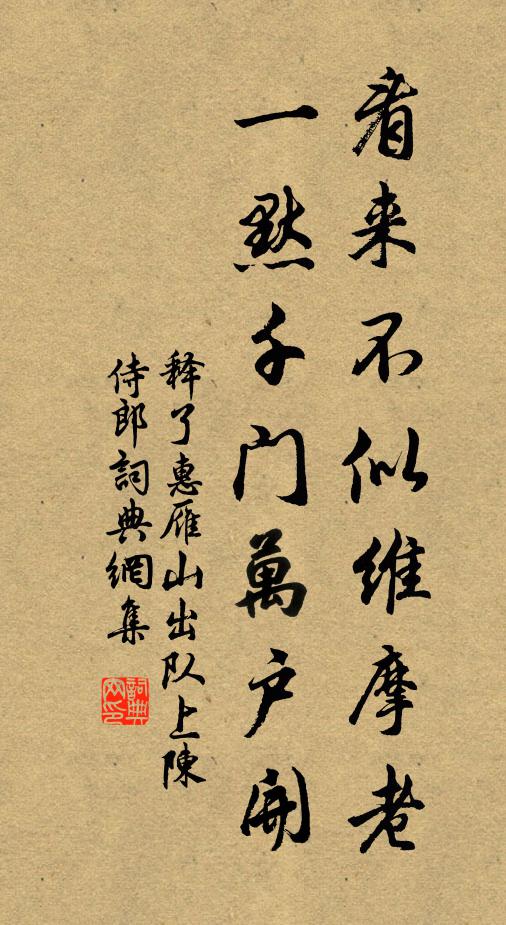 看来不似維摩老
一默千門萬户開
释了惠雁山出队上陳
侍郎詞典網集
詞典网印